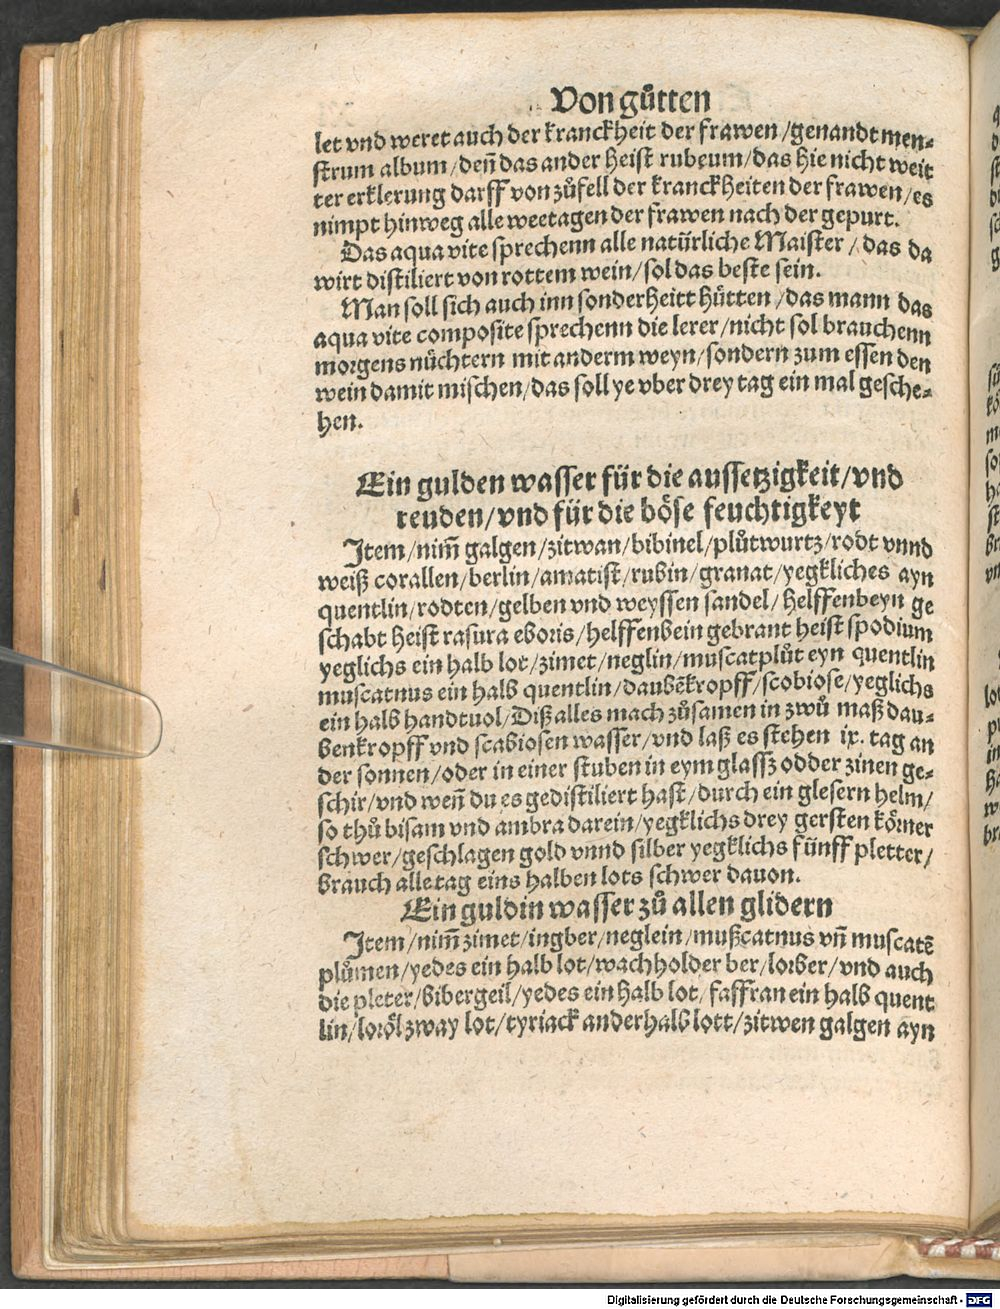 Von guͤtten
let vnd weret auch der kranckheit der frawen/genandt men-
strum album/den̄ das ander heist rubeum/das hie nicht weit
ter erklerung darff von zuͦfell der kranckheiten der frawen/es
nimpt hinweg alle weetagen der frawen nach der gepurt.
Das aqua vite sprechenn alle natürliche Maister/das da
wirt distiliert von rottem wein/sol das beste sein.
Man soll sich auch inn sonderheitt huͤtten/das mann das
aqua vite composite sprechenn die lerer/nicht sol brauchenn
morgens nuͤchtern mit anderm weyn/sondern zum essen den
wein damit mischen/das soll ye vber drey tag ein mal gesche-
hen.
Ein gulden wasser für die aussetzigkeit/vnd
reuden/vnd für die böse feuchtigkeyt
Item/nim̄ galgen/zitwan/bibinel/pluͦtwurtz/rodt vnnd
weiß corallen/berlin/amatist/rubin/granat/yegkliches ayn
quentlin/rodten/gelben vnd weyssen sandel/helffenbeyn ge
schabt heist rasura eboris/helffenbein gebrant heist spodium
yeglichs ein halb lot/zimet/neglin/muscatpluͦt eyn quentlin
muscatnus ein halb quentlin/daubēkropff/scobiose/yeglichs
ein halb handtuol/Diß alles mach zuͦsamen in zwuͦ maß dau-
benkropff vnd scabiosen wasser/vnd laß es stehen ix. tag an
der sonnen/oder in einer stuben in eym glassz odder zinen ge-
schir/vnd wen̄ du es gedistiliert hast/durch ein glesern helm/
so thuͦ bisam vnd ambra darein/yegklichs drey gersten körner
schwer/geschlagen gold vnnd silber yegklichs fünff pletter/
brauch alle tag eins halben lots schwer dauon.
Ein guldin wasser zuͦ allen glidern
Item/nim̄ zimet/ingber/neglein/mußcatnus vn̄ muscatē
pluͦmen/yedes ein halb lot/wachholder ber/lorber/vnd auch
die pleter/bibergeil/yedes ein halb lot/saffran ein halb quent
lin/loröl zway lot/tyriack anderhalb lott/zitwen galgen ayn
Digitalisierung gefördert durch die Deutsche Forschungsgemeinschaft - DFG